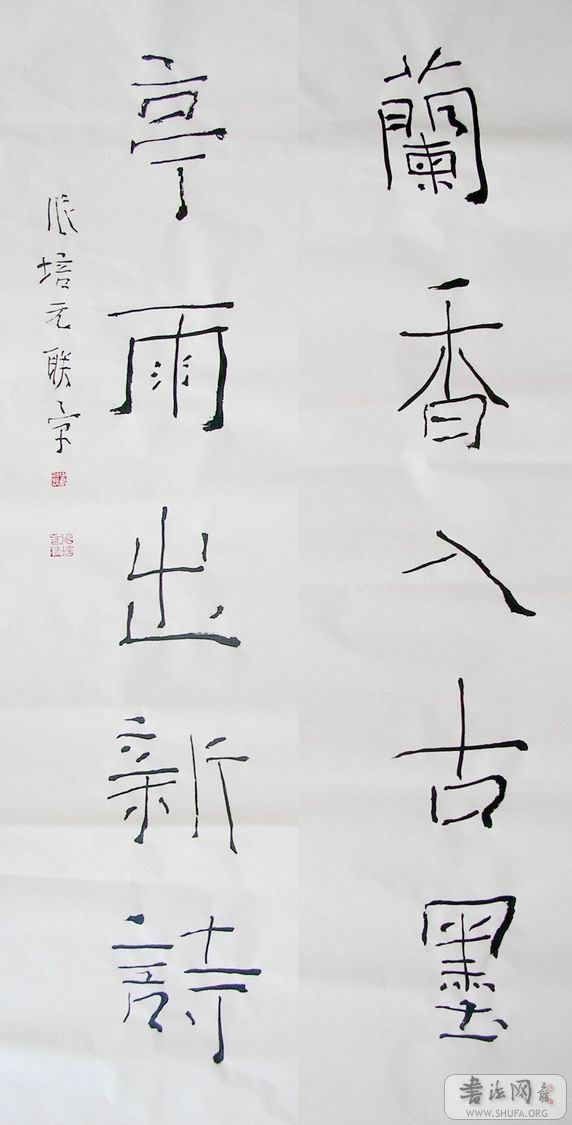 蘭香入古墨
亭雨出新詩
張培元联并
書法网
WWW.SHUFA.ORG